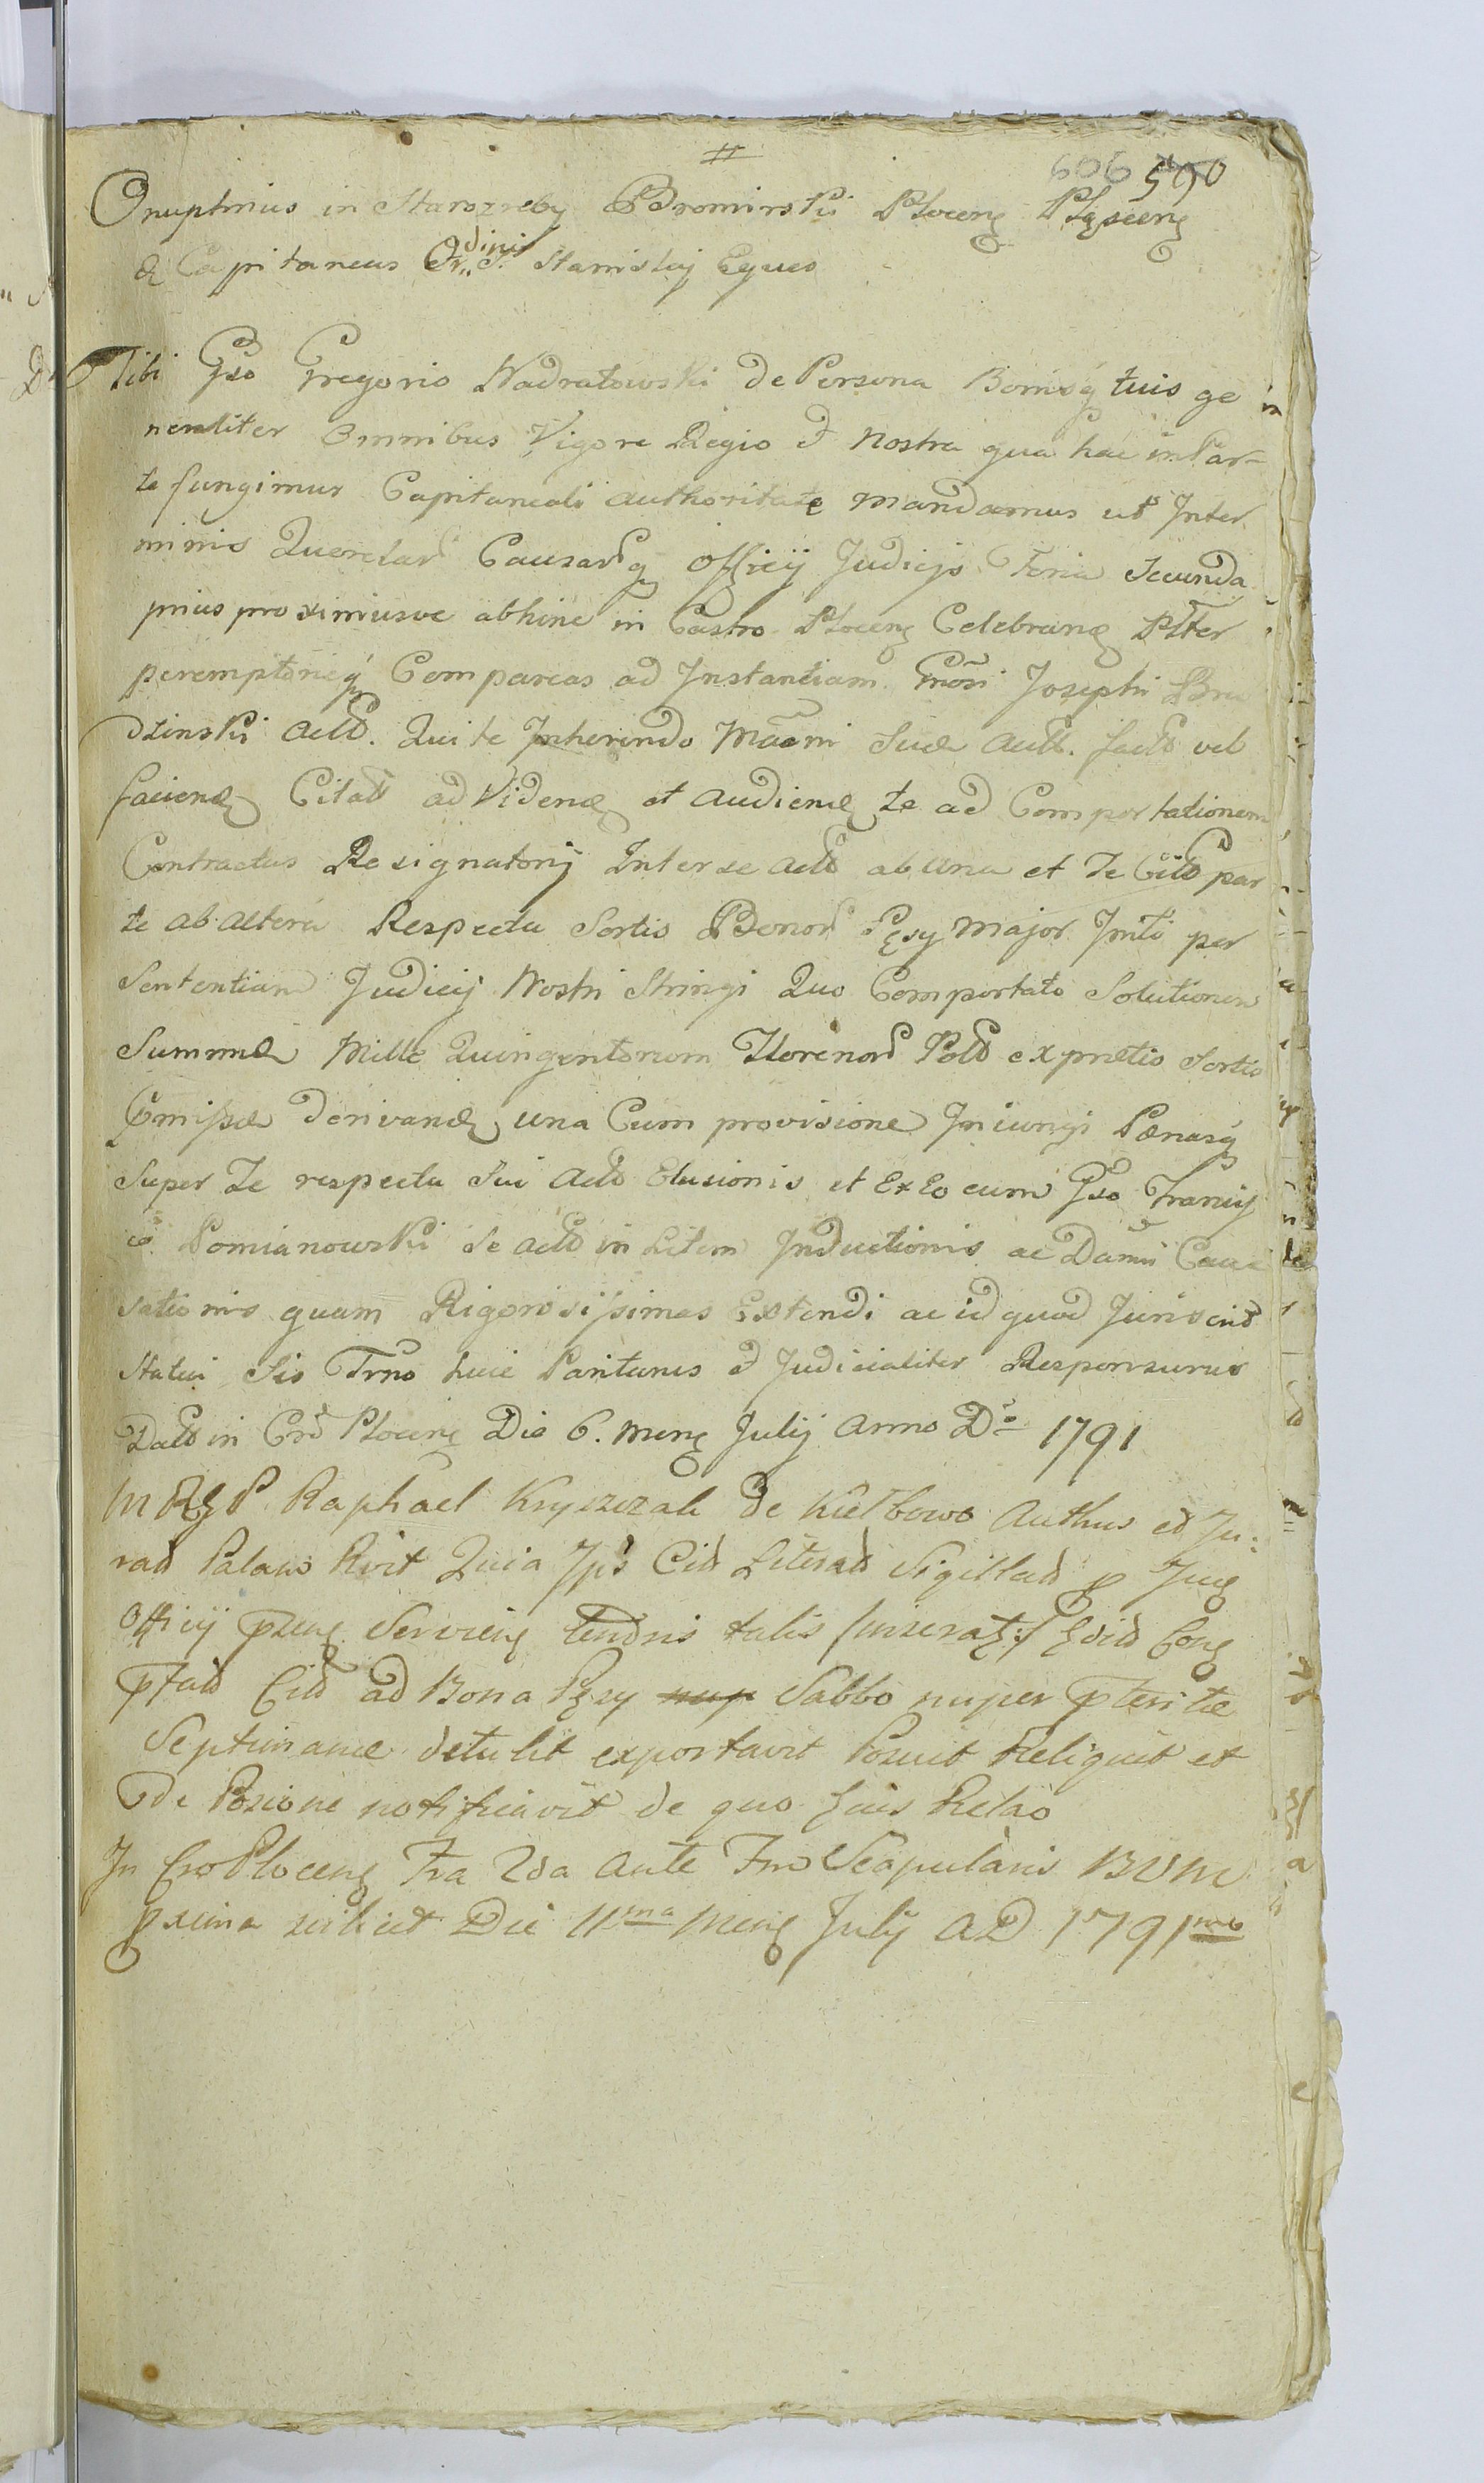 606 590
Onuphrius in Starozreby Bromirski Plocen Pląscen
& Capitaneus Ordinis S. Stanislaj Eques
Tibi Gso Gregorio Nadratowski de Persona Bonisq tuis ge
neraliter Omnibus Vigore Regio et Nostra qua hac in Par-
te fungimur Capitaneali authoritate Mandamus ut In ter
minis Querelar Causarq Officij Judicijs Feria Secunda
prius proximiusve abhinc in Castro Plocen Celebran Ptter
peremptorieq Compareas ad Instantiam Gnosi Josephi Bru
dzinski Act. Qui te Inherendo Maom Suæ Act. fact vel
facien Citat ad Viden et Audien te ad Comportationem
Contractus Resignatorij Inter se Act ab una et Te Citt par
te ab altera Respectu Sortis Bonor Pęsy Major Initi per
Sententiam Judicij Nostri Stringi Quo Comportato Solutionem
Summæ Mille Quingentorum Florenor Pol ex pretio Sortis
Emissæ derivan una Cum provisione Iniungi Pænasq
Super Te respectu Sui Act Elusionis et Ex Eo cum Gso Francis
co Pomianowski Se Act in Litem Inductionis ac Damni Cau
sationis quam Rigorosissimas Extendi ac id quod Juris erit
Statui Sis Trno huic Pariturus et Judicialiter Responsurus
Datt in Cro Plocen Die 6. Men Julij Anno Do 1791
Raphael Krysczzak de Kiełbowo Authus et Ju:
rat Palam Rvit Quia Ips Cit Literat Sigillat p Jud
Officij Servien tenoris talis /inserat:/ Edit Con
ptat Cit ad Bona Pęsy nup Sabbo nuper pteritæ
Septimanæ detulit exportavit Posuit Reliquit et
de Posione notificavit de quo huis Relao
In Cro Plocen Fra 2da Ante Fm Scapularis BVM
pxima scilicet Die 11ma Men Julij AD 1791mo